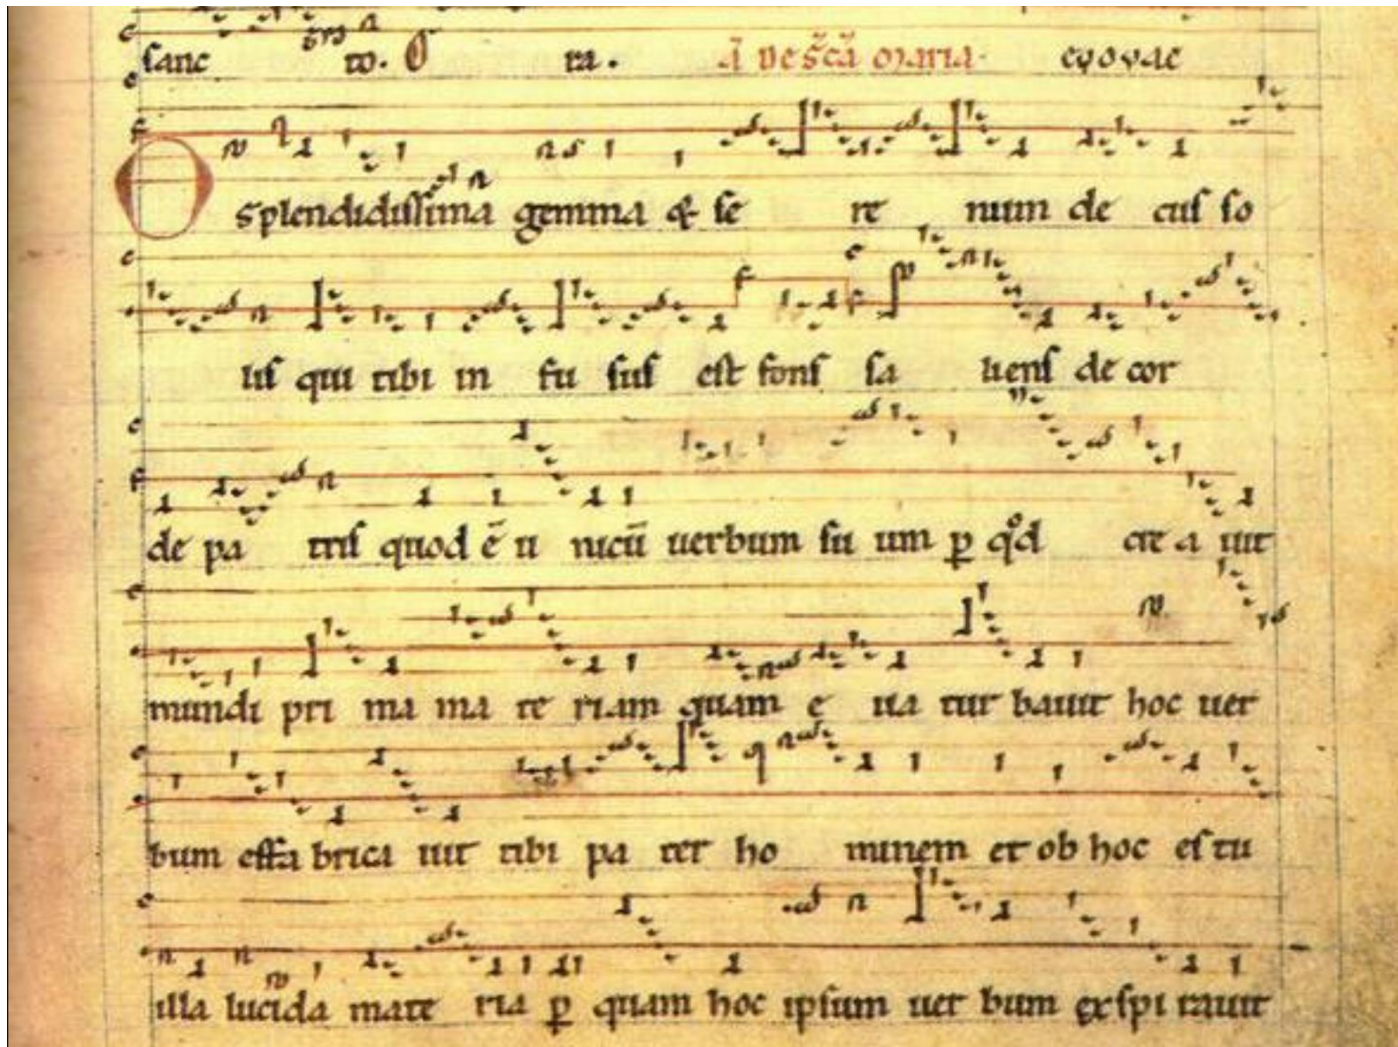 sanc to. O ra. A̅ De s̄cā Maria evovae
O splendidissima gemma & se re num de cus so
lis qui tibi in fu sus est fons sa liens de cor
de pa tris quod ē u nicū uerbum su um p̲ qͦd cre a uit
mundi pri ma ma te riam quam e ua tur bauit hoc uer
bum effa brica uit tibi pa ter ho minem et ob hoc es tu
illa lucida mate ria p̲ quam hoc ipsum uer bum ex spi rauit